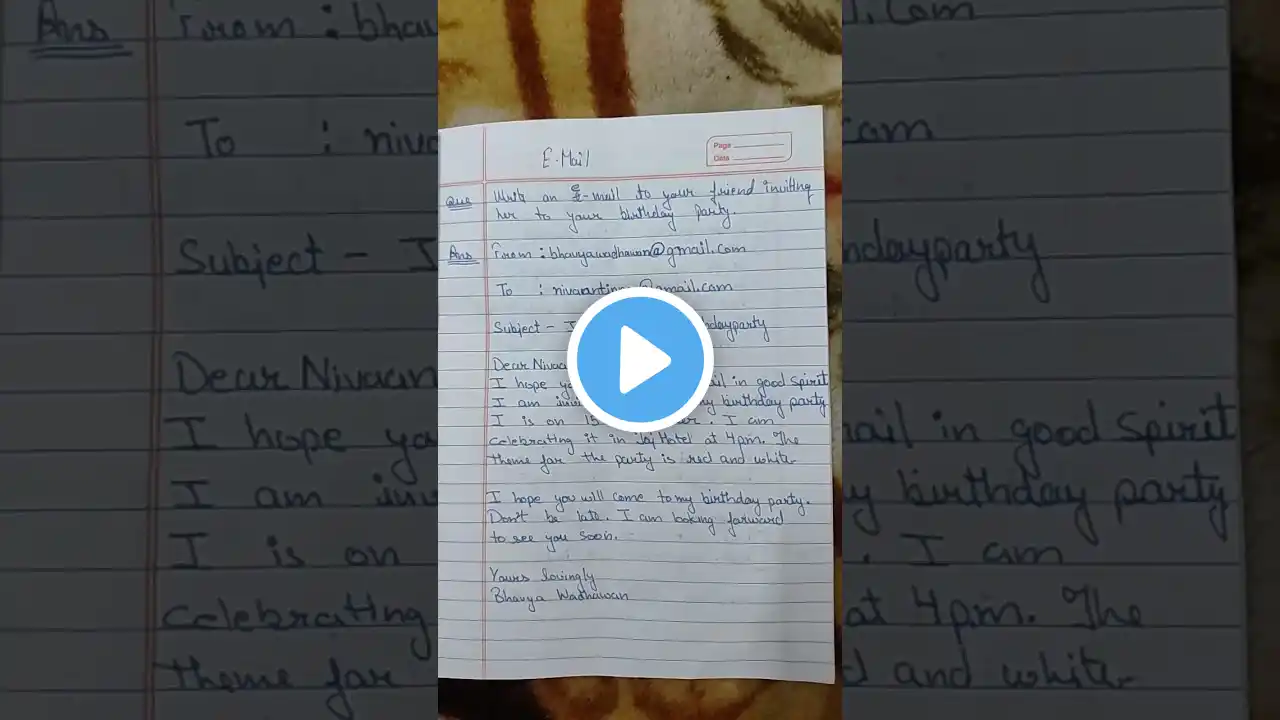 E-Mail
Page
Date
Ques Write an E-mail to your friend inviting
her to your birthday party.
Ans From : bhavyawadhawan@gmail.com
To : @gmail.com
Subject -
Dear
I hope in good spirit
I am my birthday party
I is on 15 . I am
celebrating it in Taj Hotel at 4pm. The
theme for the party is red and white
I hope you will come to my birthday party.
Don't be late. I am looking forward
to see you soon.
Yours lovingly
Bhavya Wadhawan